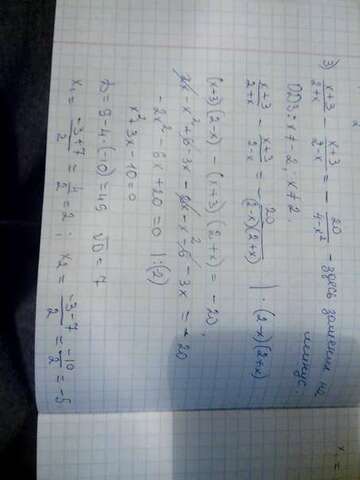 3) (x+3)/(2+x) - (x+3)/(2-x) = - 20/(4-x²) - здесь заменили на минус.
ОДЗ: x ≠ -2, x ≠ 2.
(x+3)/(2+x) - (x+3)/(2-x) = - 20/((2-x)(2+x)) | · (2-x)(2+x)
(x+3)(2-x) - (x+3)(2+x) = -20,
2x - x² + 6 - 3x - 2x - x² - 6 - 3x = -20
-2x² - 6x + 20 = 0 | :(2)
x² + 3x - 10 = 0
D = 9 - 4·(-10) = 49 √D = 7
x₁ = (-3+7)/2 = 4/2 = 2 ; x₂ = (-3-7)/2 = -10/2 = -5